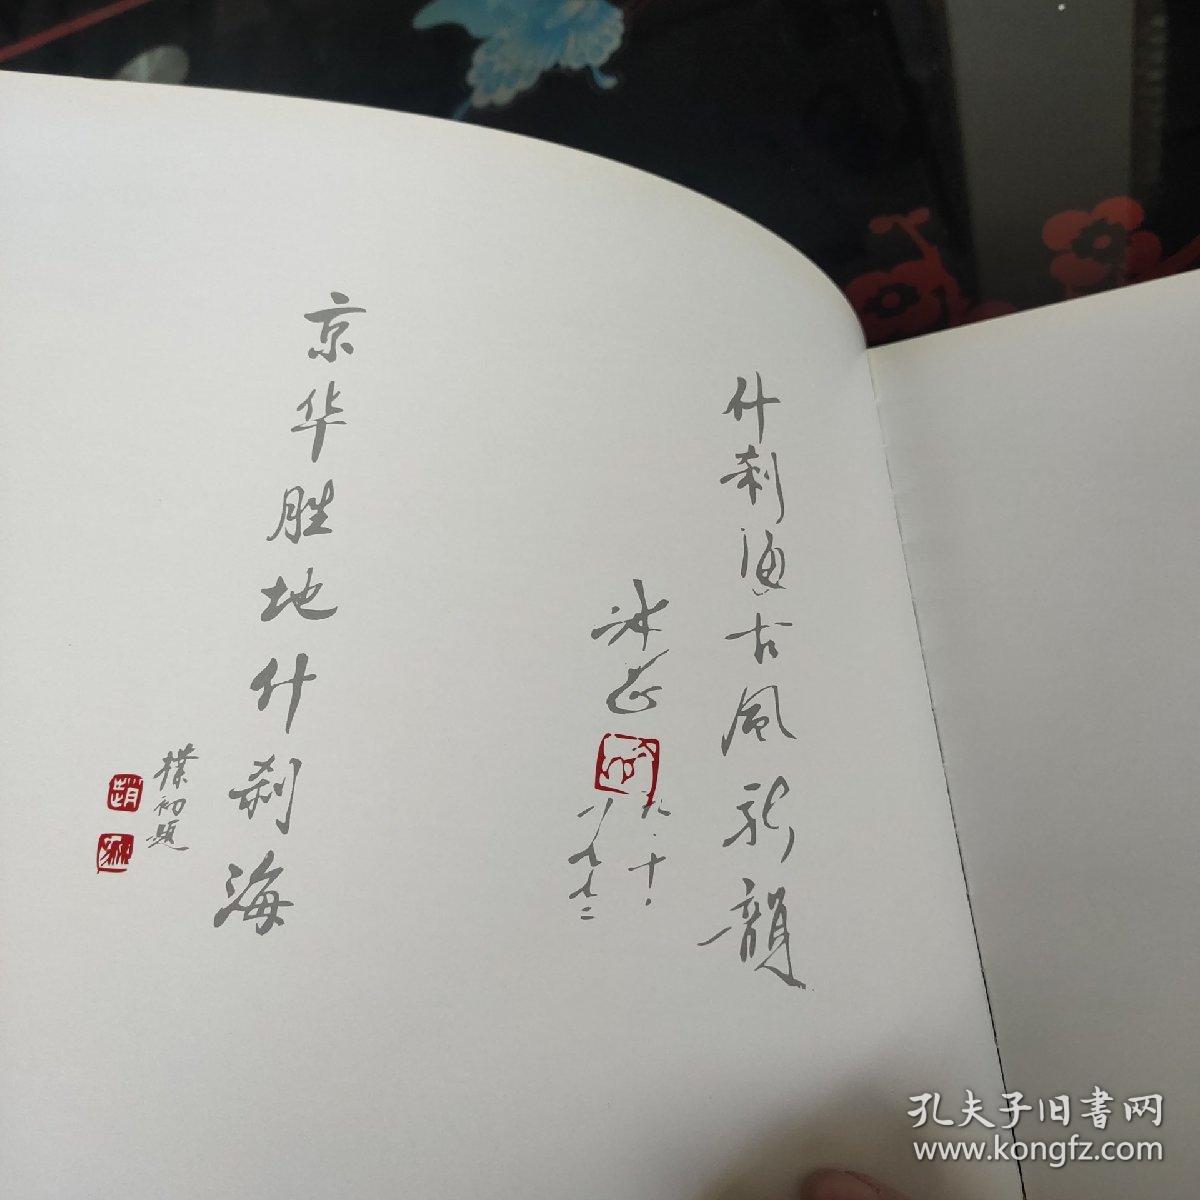 什刹海古风新韻
冰心
九·十·
京华胜地什刹海
樸初题
趙
孔夫子旧書网
www.kongfz.com